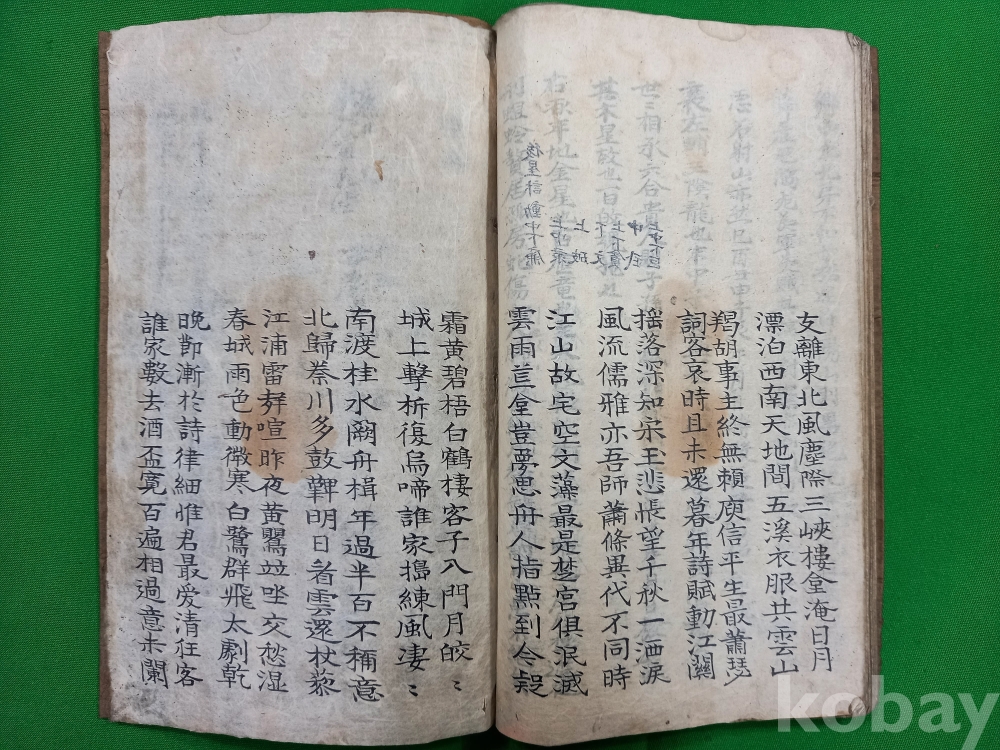 支離東北風塵際三峽樓㙜淹日月
漂泊西南天地間五溪衣服共雲山
羯胡事主終無賴庾信平生最蕭瑟
詞客哀時且未還暮年詩賦動江關
揺落深知宋玉悲悵望千秋一洒淚
風流儒雅亦吾師蕭條異代不同時
江山故宅空文藻最是楚宮俱泯滅
雲雨荒㙜豈夢思舟人指點到今疑
霜黃碧梧白鶴棲客子入門月皎〻
城上擊柝復烏啼誰家搗練風凄〻
南渡桂水闕舟楫年過半百不稱意
北歸秦川多鼓鼙明日看雲還杖藜
江浦雷聲喧昨夜黃鸎並坐交愁湿
春城雨色動微寒白鷺群飛太劇乾
晩節漸於詩律細惟君最爱清狂客
誰家數去酒盃寛百遍相過意未闌
kobay